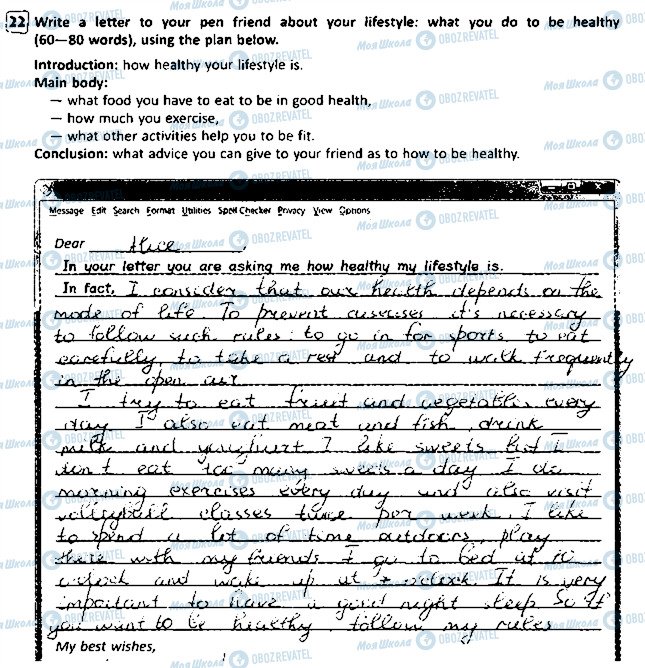 22 Write a letter to your pen friend about your lifestyle: what you do to be healthy
(60—80 words), using the plan below.
Introduction: how healthy your lifestyle is.
Main body:
— what food you have to eat to be in good health,
— how much you exercise,
— what other activities help you to be fit.
Conclusion: what advice you can give to your friend as to how to be healthy.
Message Edit Search Format Utilities Spell Checker Privacy View Options
Dear Alice,
In your letter you are asking me how healthy my lifestyle is.
In fact, I consider that our health depends on the
mode of life. To prevent it's necessary
to follow such rules: to go in for sports to eat
carefully, to take a rest and to walk frequently
in the open air
I try to eat fruit and vegetables every
day I also eat meat and fish, drink
milk and I like sweets But I
don't eat too many sweets a day I do
morning exercises every day and also visit
volleyball classes twice per week. I like
to spend a lot of time outdoors, play
there with my friends I go to bed at 10
o'clock and wake up at 7 o'clock. It is very
important to have a good night sleep So if
you want to be healthy follow my rules
My best wishes,
Моя Школа OBOZREVATEL